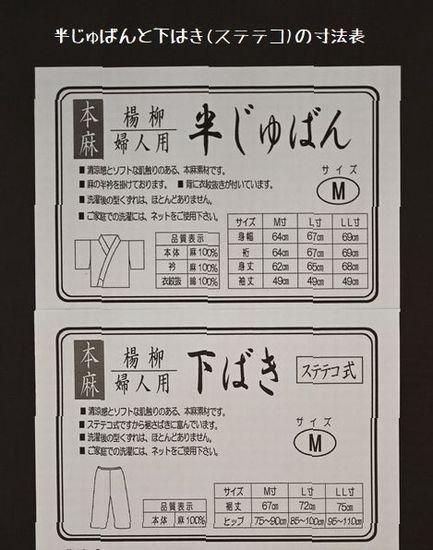 半じゅばんと下はき(ステテコ)の寸法表
本麻
楊柳
婦人用
半じゅばん
■ 清涼感とソフトな肌触りのある、本麻素材です。
■ 麻の半衿を掛けております。 ■ 背に衣紋抜きが付いています。
■ 洗濯後の型くずれは、ほとんどありません。
■ ご家庭での洗濯には、ネットをご使用下さい。
サイズ
M
品質表示
本体 麻100%
衿 麻100%
衣紋抜 綿100%
サイズ M寸 L寸 LL寸
身幅 64cm 67cm 69cm
裄 64cm 67cm 69cm
身丈 62cm 65cm 68cm
袖丈 49cm 49cm 49cm
本麻
楊柳
婦人用
下ばき
ステテコ式
■ 清涼感とソフトな肌触りのある、本麻素材です。
■ ステテコ式ですから裾さばきに富んでいます。
■ 洗濯後の型くずれは、ほとんどありません。
■ ご家庭での洗濯には、ネットをご使用下さい。
サイズ
M
品質表示
本体 麻100%
サイズ M寸 L寸 LL寸
裾丈 67cm 72cm 75cm
ヒップ 75~90cm 85~100cm 95~110cm